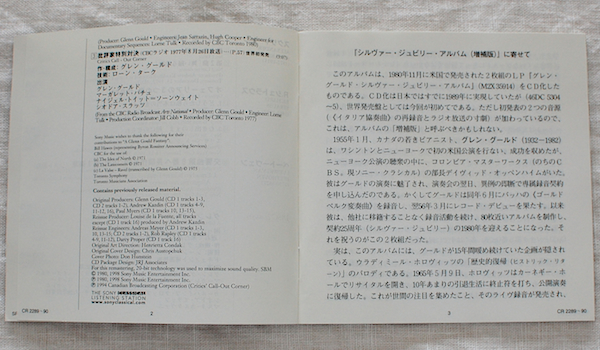 (Producer: Glenn Gould • Engineer: Jean Sarrazin, Hugh Cooper • Engineer for
Documentary Sequences: Lorne Tulk • Recorded by CBC Toronto 1980)
批評家特別対決 (CBCラジオ 1977年8月26日放送)
Critics Call - Out Corner
作・構成：グレン・グールド
技術：ローン・ターク
出演
グレン・グールド
マーガレット・パチュ
ナイジェル・イットー＝ソーンウェイト
シオドア・スラッツ
(From the CBC Radio Broadcast Arts National • Producer: Glenn Gould • Engineer: Lorne
Tulk • Production Coordinator: Jill Cobb • Recorded by CBC Toronto 1977)
Sony Music wishes to thank the following for their
contributions to "A Glenn Gould Fantasy":
CBC for the use of:
(a) The Idea of North (© 1967)
(b) The Latecomers (© 1969)
Toronto Symphony
Toronto Musicians Association
Contains previously released material.
Original Producers: Glenn Gould (CD 1 tracks 1-3,
CD 2 tracks 1-2), Andrew Kazdin (CD 1 tracks 4-9,
11-12, 16), Paul Myers (CD 1 tracks 10, 13-15)
Reissue Producer: Louise de la Fuente, all tracks
except (CD 1 track 16) produced by Andrew Kazdin
Reissue Engineers: Andreas Meyer (CD 1 tracks 1-3,
10, 13-15; CD 2 tracks 1-2), Rob Rapley (CD 1 tracks
4-9, 11-12), Darcy Proper (CD 1 track 16)
Original Art Direction: Henrietta Condak
Original Cover Design: Chris Austopchuk
Cover Photo: Don Hunstein
CD Package Design: J&J Associates
For this remastering, 20-bit technology was used to maximize sound quality. SBM
© 1980, 1998 Sony Music Entertainment Inc.
℗ 1980, 1998 Sony Music Entertainment Inc.
℗ 1994 Canadian Broadcasting Corporation (Critics' Call-Out Corner)
THE SONY CLASSICAL
LISTENING STATION
www.sonyclassical.com
SF CR 2289～90
2
「シルヴァー・ジュビリー・アルバム（増補版）」に寄せて
このアルバムは、1980年11月に米国で発売された2枚組のLP『グレン・
グールド・シルヴァー・ジュビリー・アルバム』(M2X 35914) をCD化した
ものである。CD化は日本ではすでに1989年に実現していたが (46DC 5304
～5)、世界発売盤としては今回が初めてである。ただし初発表の2つの音源
(《イタリア協奏曲》の再録音とラジオ放送の寸劇) が加わっているので、
これは、アルバムの「増補版」と呼ぶべきかもしれない。
1955年1月、カナダの若きピアニスト、グレン・グールド (1932～1982)
は、ワシントンとニューヨークで初の米国公演を行ない、成功を収めたが、
ニューヨーク公演の聴衆の中に、コロンビア・マスターワークス (のちのC
BS、現ソニー・クラシカル) の部長デイヴィッド・オッペンハイムがいた。
彼はグールドの演奏に魅了され、演奏会の翌日、異例の即断で専属録音契約
を申し込んだのである。かくしてグールドは同年6月にバッハの《ゴールド
ベルク変奏曲》を録音し、翌56年3月にレコード・デビューを果たす。以来
彼は、他社に移籍することなく録音活動を続け、80枚近いアルバムを制作し、
契約25周年 (シルヴァー・ジュビリー) の1980年を迎えることになった。そ
れを祝うのがこの2枚組だった。
実は、このアルバムには、グールドが15年間暖め続けていた企画が隠され
ている。ウラディミール・ホロヴィッツの『歴史的復帰 (ヒストリック・リタ
ーン)』のパロディである。1965年5月9日、ホロヴィッツはカーネギー・ホ
ールでリサイタルを開き、10年あまりの引退生活に終止符を打ち、公開演奏
に復帰した。これが世間の注目を集めたこと、そのライヴ録音が発売され、
3
CR 2289～90